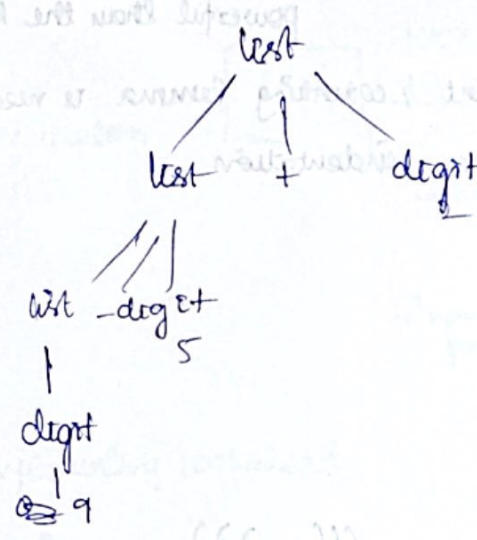 list
list + digit
2
list - digit
5
digit
9